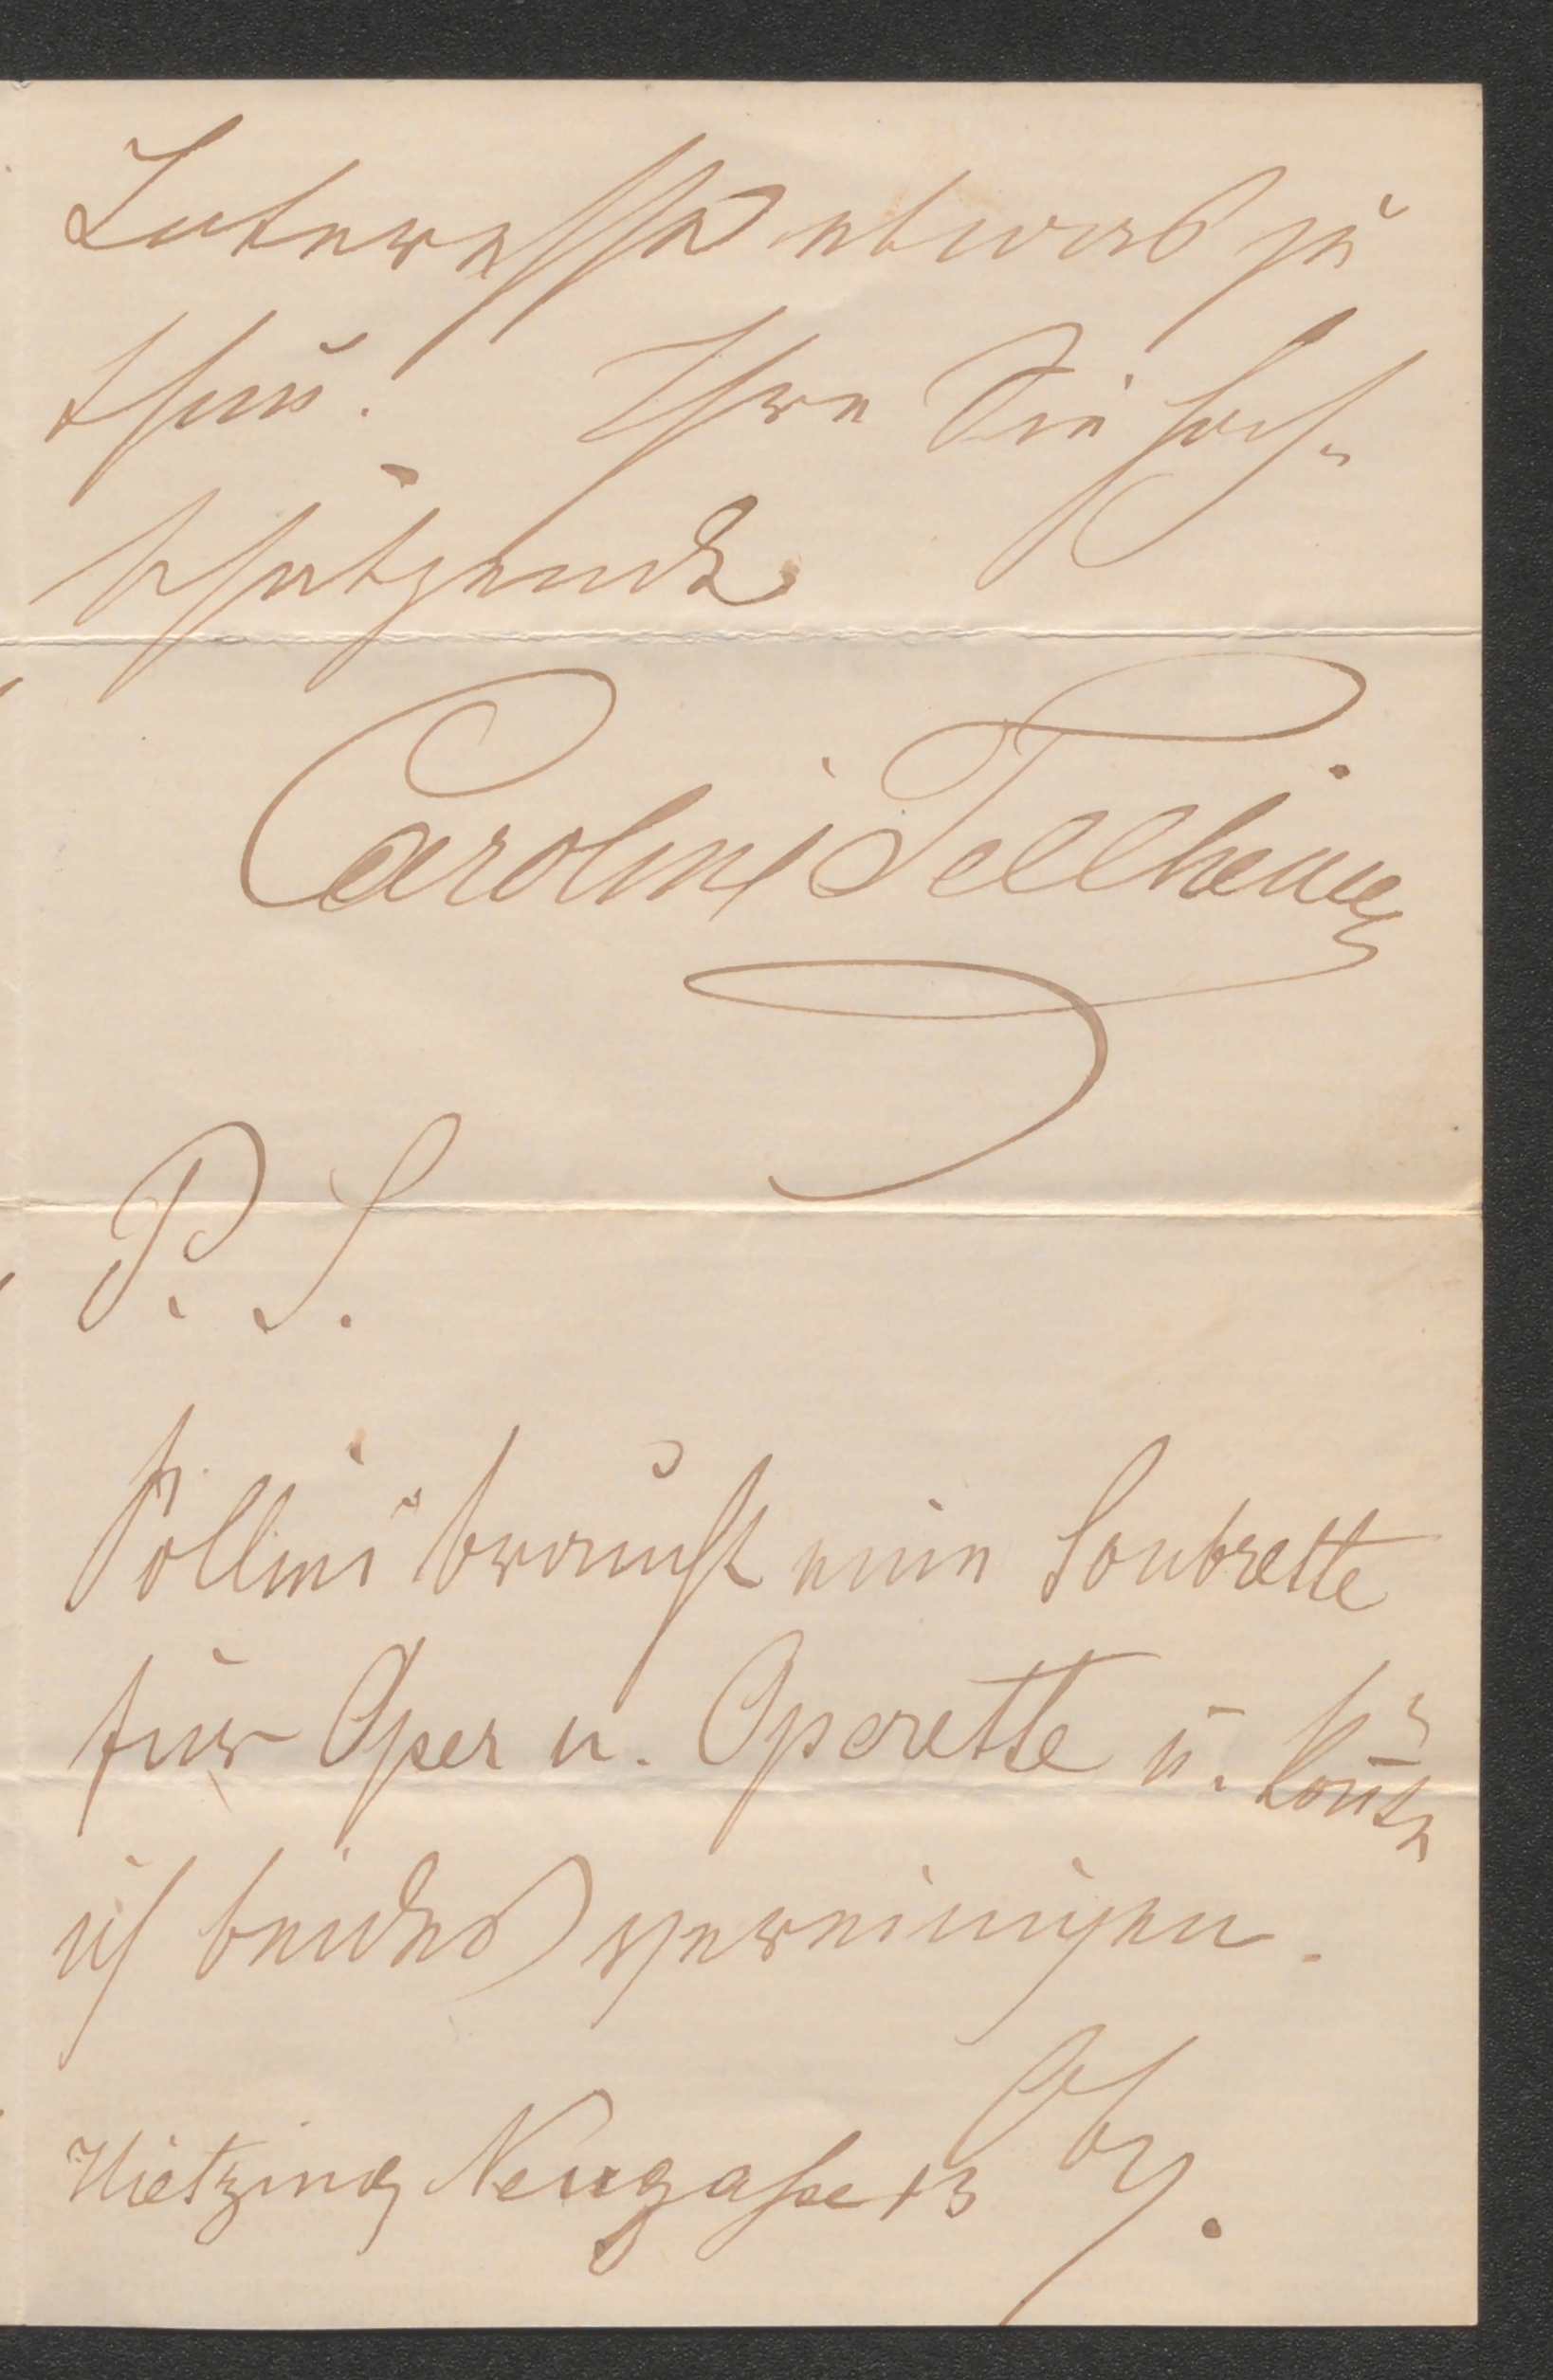 Interesse etwas zu
thun. Ihre Sie hoch-
schätzende
Caroline Tellheim
P. S.
Pollini braucht eine Soubrette
für Oper u. Operette u. könnte
ich beides vereinigen.
Hietzing Neugasse 13 Obg.